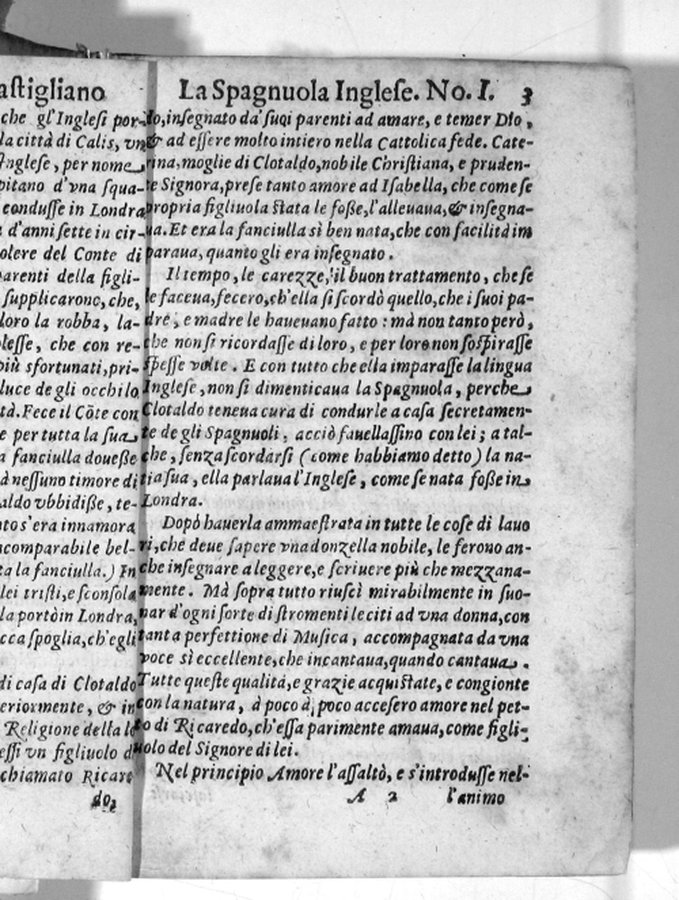 astigliano
che gl'Inglesi por-
la città di Calis, vn
Inglese, per nome
pitano d'vna squa-
condusse in Londra
d'anni sette in cir-
olere del Conte di
parenti della figli-
supplicarono, che,
loro la robba, la-
lesse, che con re-
più sfortunati, pri-
luce de gli occhi lo
tà. Fece il Cōte con
e per tutta la sua
a fanciulla douesse
à nessuno timore di
aldo vbbidisse, te-
nto s'era innamora
ncomparabile bel-
ta la fanciulla.) In
lei tristi, e sconsola
la portò in Londra,
cca spoglia, ch'egli
di casa di Clotaldo
eriormente, & in
Religione della lo
essi vn figliuolo d
chiamato Ricare
do,
La Spagnuola Inglese. No. I. 3
do, insegnato da' suoi parenti ad amare, e temer Dio,
& ad essere molto intiero nella Cattolica fede. Cate-
rina, moglie di Clotaldo, nobile Christiana, e pruden-
te Signora, prese tanto amore ad Isabella, che come se
propria figliuola stata le fosse, l'alleuaua, & insegna-
ua. Et era la fanciulla sì ben nata, che con facilità im
paraua, quanto gli era insegnato.
Il tempo, le carezze, il buon trattamento, che se
le faceua, fecero, ch'ella si scordò quello, che i suoi pa-
dre, e madre le haueuano fatto: mà non tanto però,
che non si ricordasse di loro, e per loro non sospirasse
spesse volte. E con tutto che ella imparasse la lingua
Inglese, non si dimenticaua la Spagnuola, perche
Clotaldo teneua cura di condurle a casa secretamen-
te de gli Spagnuoli, acciò fauellassino con lei; a tal-
che, senza scordarsi (come habbiamo detto) la na-
tia sua, ella parlaua l'Inglese, come se nata fosse in
Londra.
Dopò hauerla ammaestrata in tutte le cose di lauo
ri, che deue sapere vna donzella nobile, le ferono an-
che insegnare a leggere, e scriuere più che mezzana-
mente. Mà sopra tutto riuscì mirabilmente in suo-
nar d'ogni sorte di stromenti leciti ad vna donna, con
tanta perfettione di Musica, accompagnata da vna
voce sì eccellente, che incantaua, quando cantaua.
Tutte queste qualità, e grazie acquistate, e congionte
con la natura, à poco à poco accesero amore nel pet-
to di Ricaredo, ch'essa parimente amaua, come figli-
uolo del Signore di lei.
Nel principio Amore l'assaltò, e s'introdusse nel-
A 2 l'animo